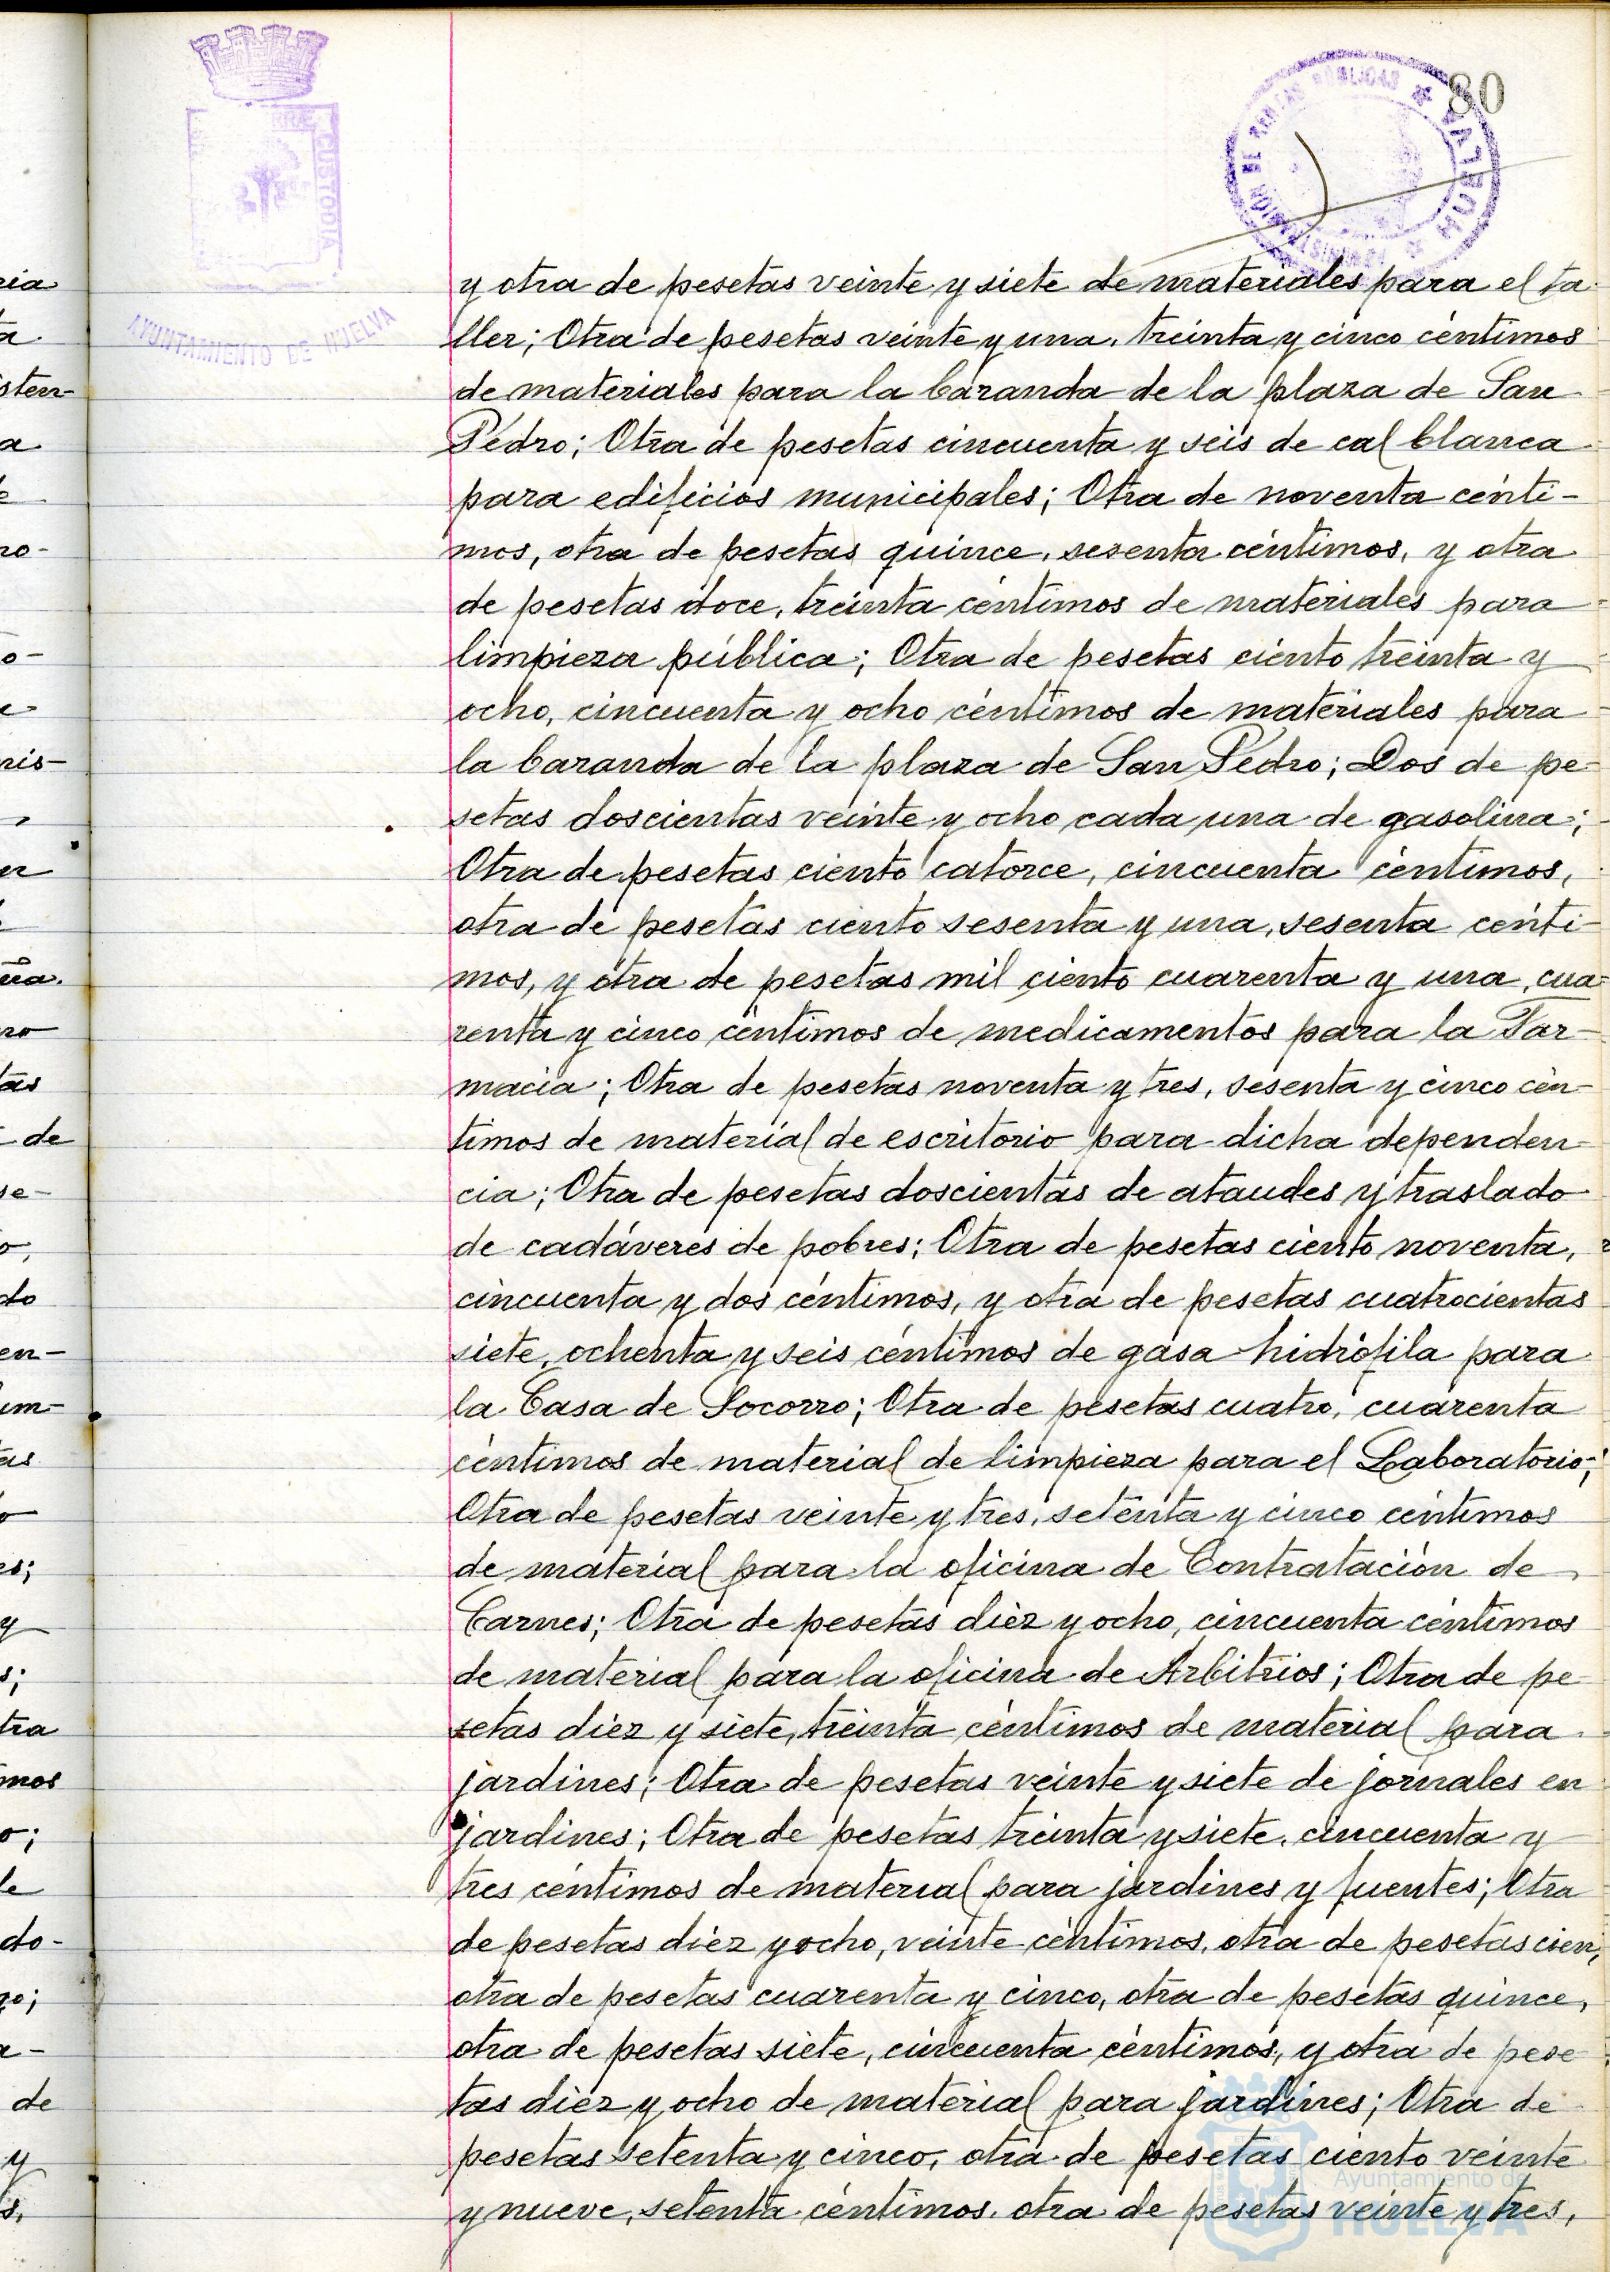 80
CUSTODIA
AYUNTAMIENTO DE HUELVA
HUELVA
y otra de pesetas veinte y siete de materiales para el ta-
ller; Otra de pesetas veinte y una, treinta y cinco céntimos
de materiales para la baranda de la plaza de San
Pedro; Otra de pesetas cincuenta y seis de cal blanca
para edificios municipales; Otra de noventa cénti-
mos, otra de pesetas quince, sesenta céntimos, y otra
de pesetas doce, treinta céntimos de materiales para
limpieza pública; Otra de pesetas ciento treinta y
ocho, cincuenta y ocho céntimos de materiales para
la baranda de la plaza de San Pedro; Dos de pe-
setas doscientas veinte y ocho cada una de gasolina;
Otra de pesetas ciento catorce, cincuenta céntimos,
otra de pesetas ciento sesenta y una, sesenta cénti-
mos, y otra de pesetas mil ciento cuarenta y una, cua-
renta y cinco céntimos de medicamentos para la Far-
macia; Otra de pesetas noventa y tres, sesenta y cinco cén-
timos de material de escritorio para dicha dependen-
cia; Otra de pesetas doscientas de ataudes y traslado
de cadáveres de pobres; Otra de pesetas ciento noventa,
cincuenta y dos céntimos, y otra de pesetas cuatrocientas
siete, ochenta y seis céntimos de gasa hidrófila para
la Casa de Socorro; Otra de pesetas cuatro, cuarenta
céntimos de material de limpieza para el Laboratorio;
Otra de pesetas veinte y tres, setenta y cinco céntimos
de material para la oficina de Contratación de
Carnes; Otra de pesetas diez y ocho, cincuenta céntimos
de material para la oficina de Arbitrios; Otra de pe-
setas diez y siete, treinta céntimos de material para
jardines; Otra de pesetas veinte y siete de jornales en
jardines; Otra de pesetas treinta y siete, cincuenta y
tres céntimos de material para jardines y fuentes; Otra
de pesetas diez y ocho, veinte céntimos, otra de pesetas cien,
otra de pesetas cuarenta y cinco, otra de pesetas quince,
otra de pesetas siete, cincuenta céntimos, y otra de pese-
tas diez y ocho de material para jardines; Otra de
pesetas setenta y cinco, otra de pesetas ciento veinte
y nueve, setenta céntimos, otra de pesetas veinte y tres,
Ayuntamiento de
HUELVA